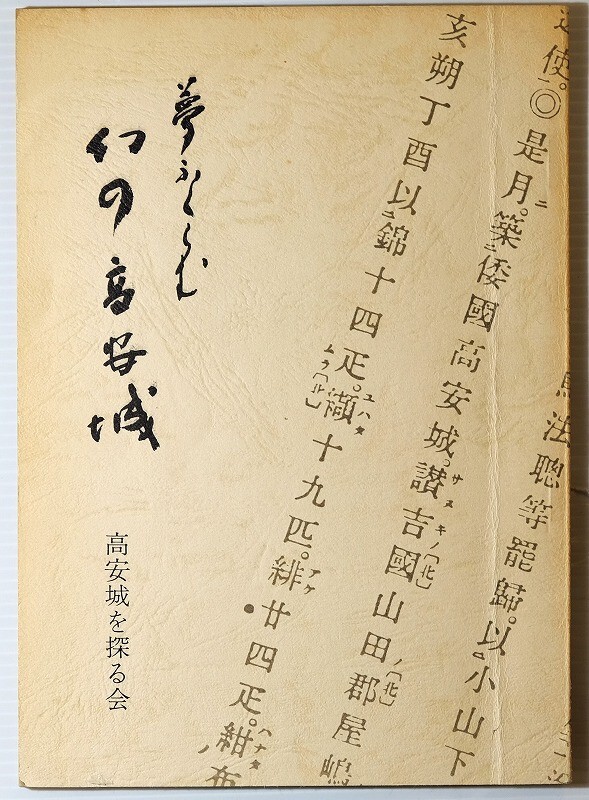 使。◎是月。築倭國高安城。讃吉國山田郡屋嶋
法聰等罷歸。以小山下
亥朔丁酉以錦十四疋。纈十九匹。緋廿四疋。紺布
夢ふくらむ
幻の高安城
高安城を探る会